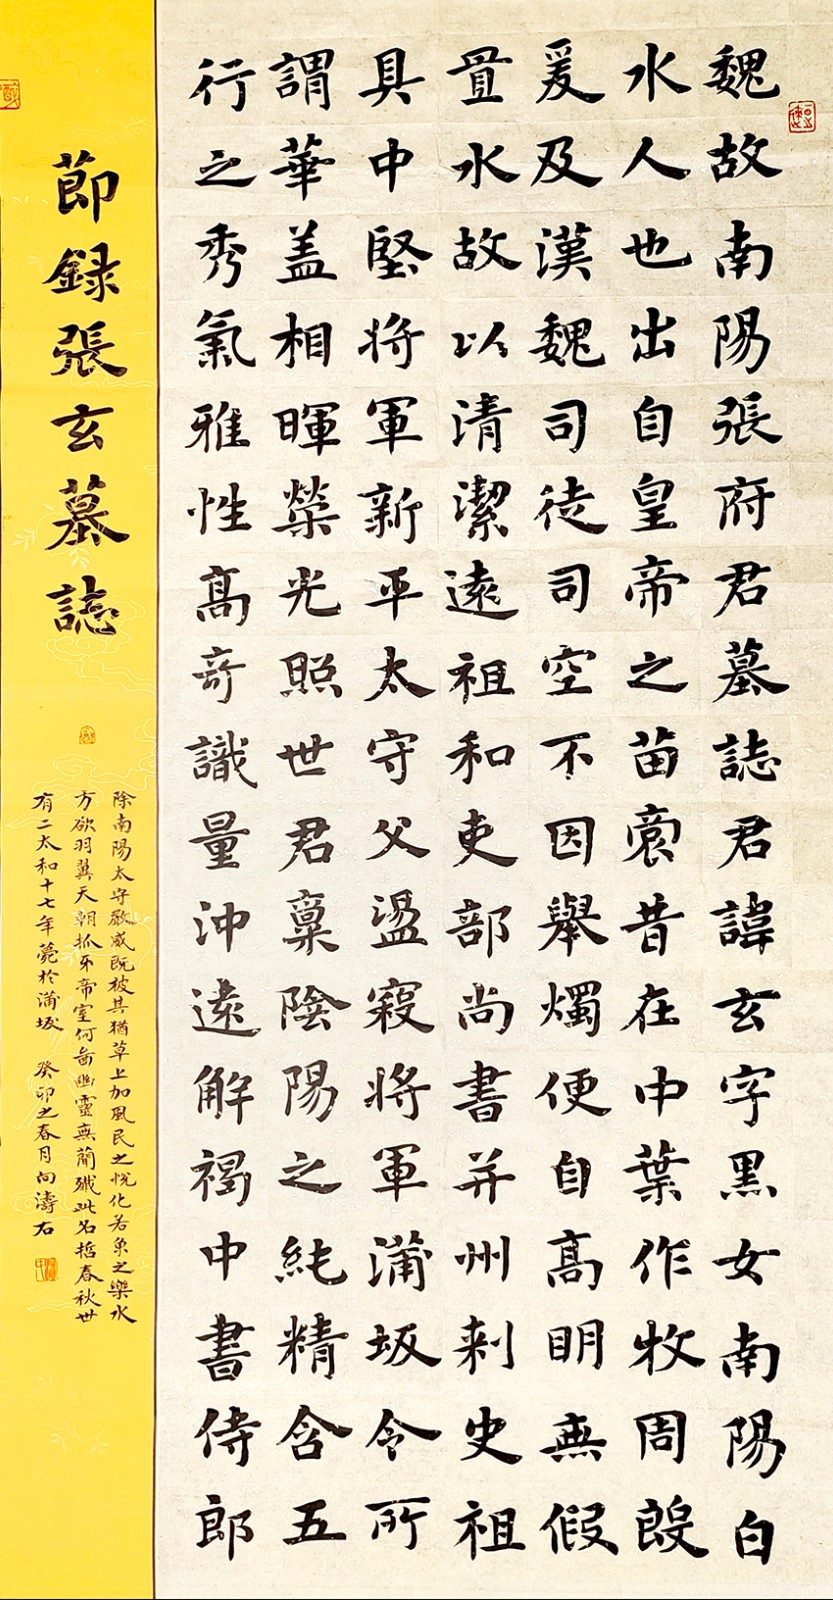 魏故南陽張府君墓誌君諱玄字黑女南陽白
水人也出自皇帝之苗裔昔在中葉作牧周殷
爰及漢魏司徒司空不因舉燭便自高明無假
置水故以清潔遠祖和吏部尚書并州刺史祖
具中堅將軍新平太守父盪寇將軍蒲坂令所
謂華盖相暉榮光照世君稟陰陽之純精含五
行之秀氣雅性高奇識量沖遠解褐中書侍郎
節録張玄墓誌
除南陽太守嚴威既被其猶草上加風民之悅化若魚之樂水
方欲羽翼天朝抓牙帝室何啚幽靈無簡殲此名哲春秋卅
有二太和十七年薨於蒲坂 癸卯之春月向濤右